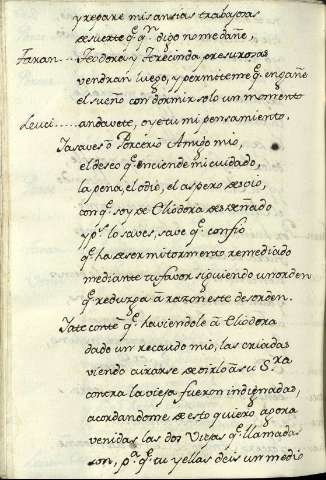 y repare mis ansias trabajosas
de suerte q̃ q.n digo no me dañe,
Faran... Feodora y Arecinda presurosas
vendran luego, y permiteme q̃ engañe
el sueño con dormir solo un momento
Leuci..... anda vete, oye tu mi pensamiento.
Ya saves ò Porcerio Amigo mio,
el deseo q̃ enciende mi cuidado,
la pena, el odio, el aspero desvio,
con q̃ soy de Eliodora desdeñado
y p.s lo saves, save q̃ confio
q̃ ha de ser mi tormento remediado
mediante tu favor siguiendo un orden
q̃ reduzga â razon este desorden.
Ya te conte q̃ haviendole â Eliodora
dado un recaudo mio, las criadas
viendo airarse de oirlo â su S.ra
contra la vieja fueron indignadas,
acordandome de esto quiero agora
venidas las dos Viejas q̃ llamadas
son, p.a q̃ tu y ellas deis un medio